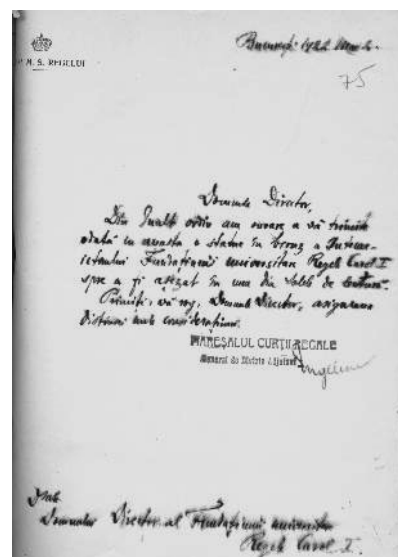 M. S. REGELUI
București 1922
75
Domnule Director,
Din Înalt ordin am onoare a vă trimite
odată cu aceasta o statue în bronz a
Fundațiunii universitare Regele Carol I
spre a fi așezat în una din salele de
Primiți, vă rog, Domnule Director, asigurarea
considerațiuni.
MAREȘALUL CURȚII REGALE
General de Divizie Adjutant
Angelescu
Domnului Director al Fundațiunii universitare
Regele Carol I.